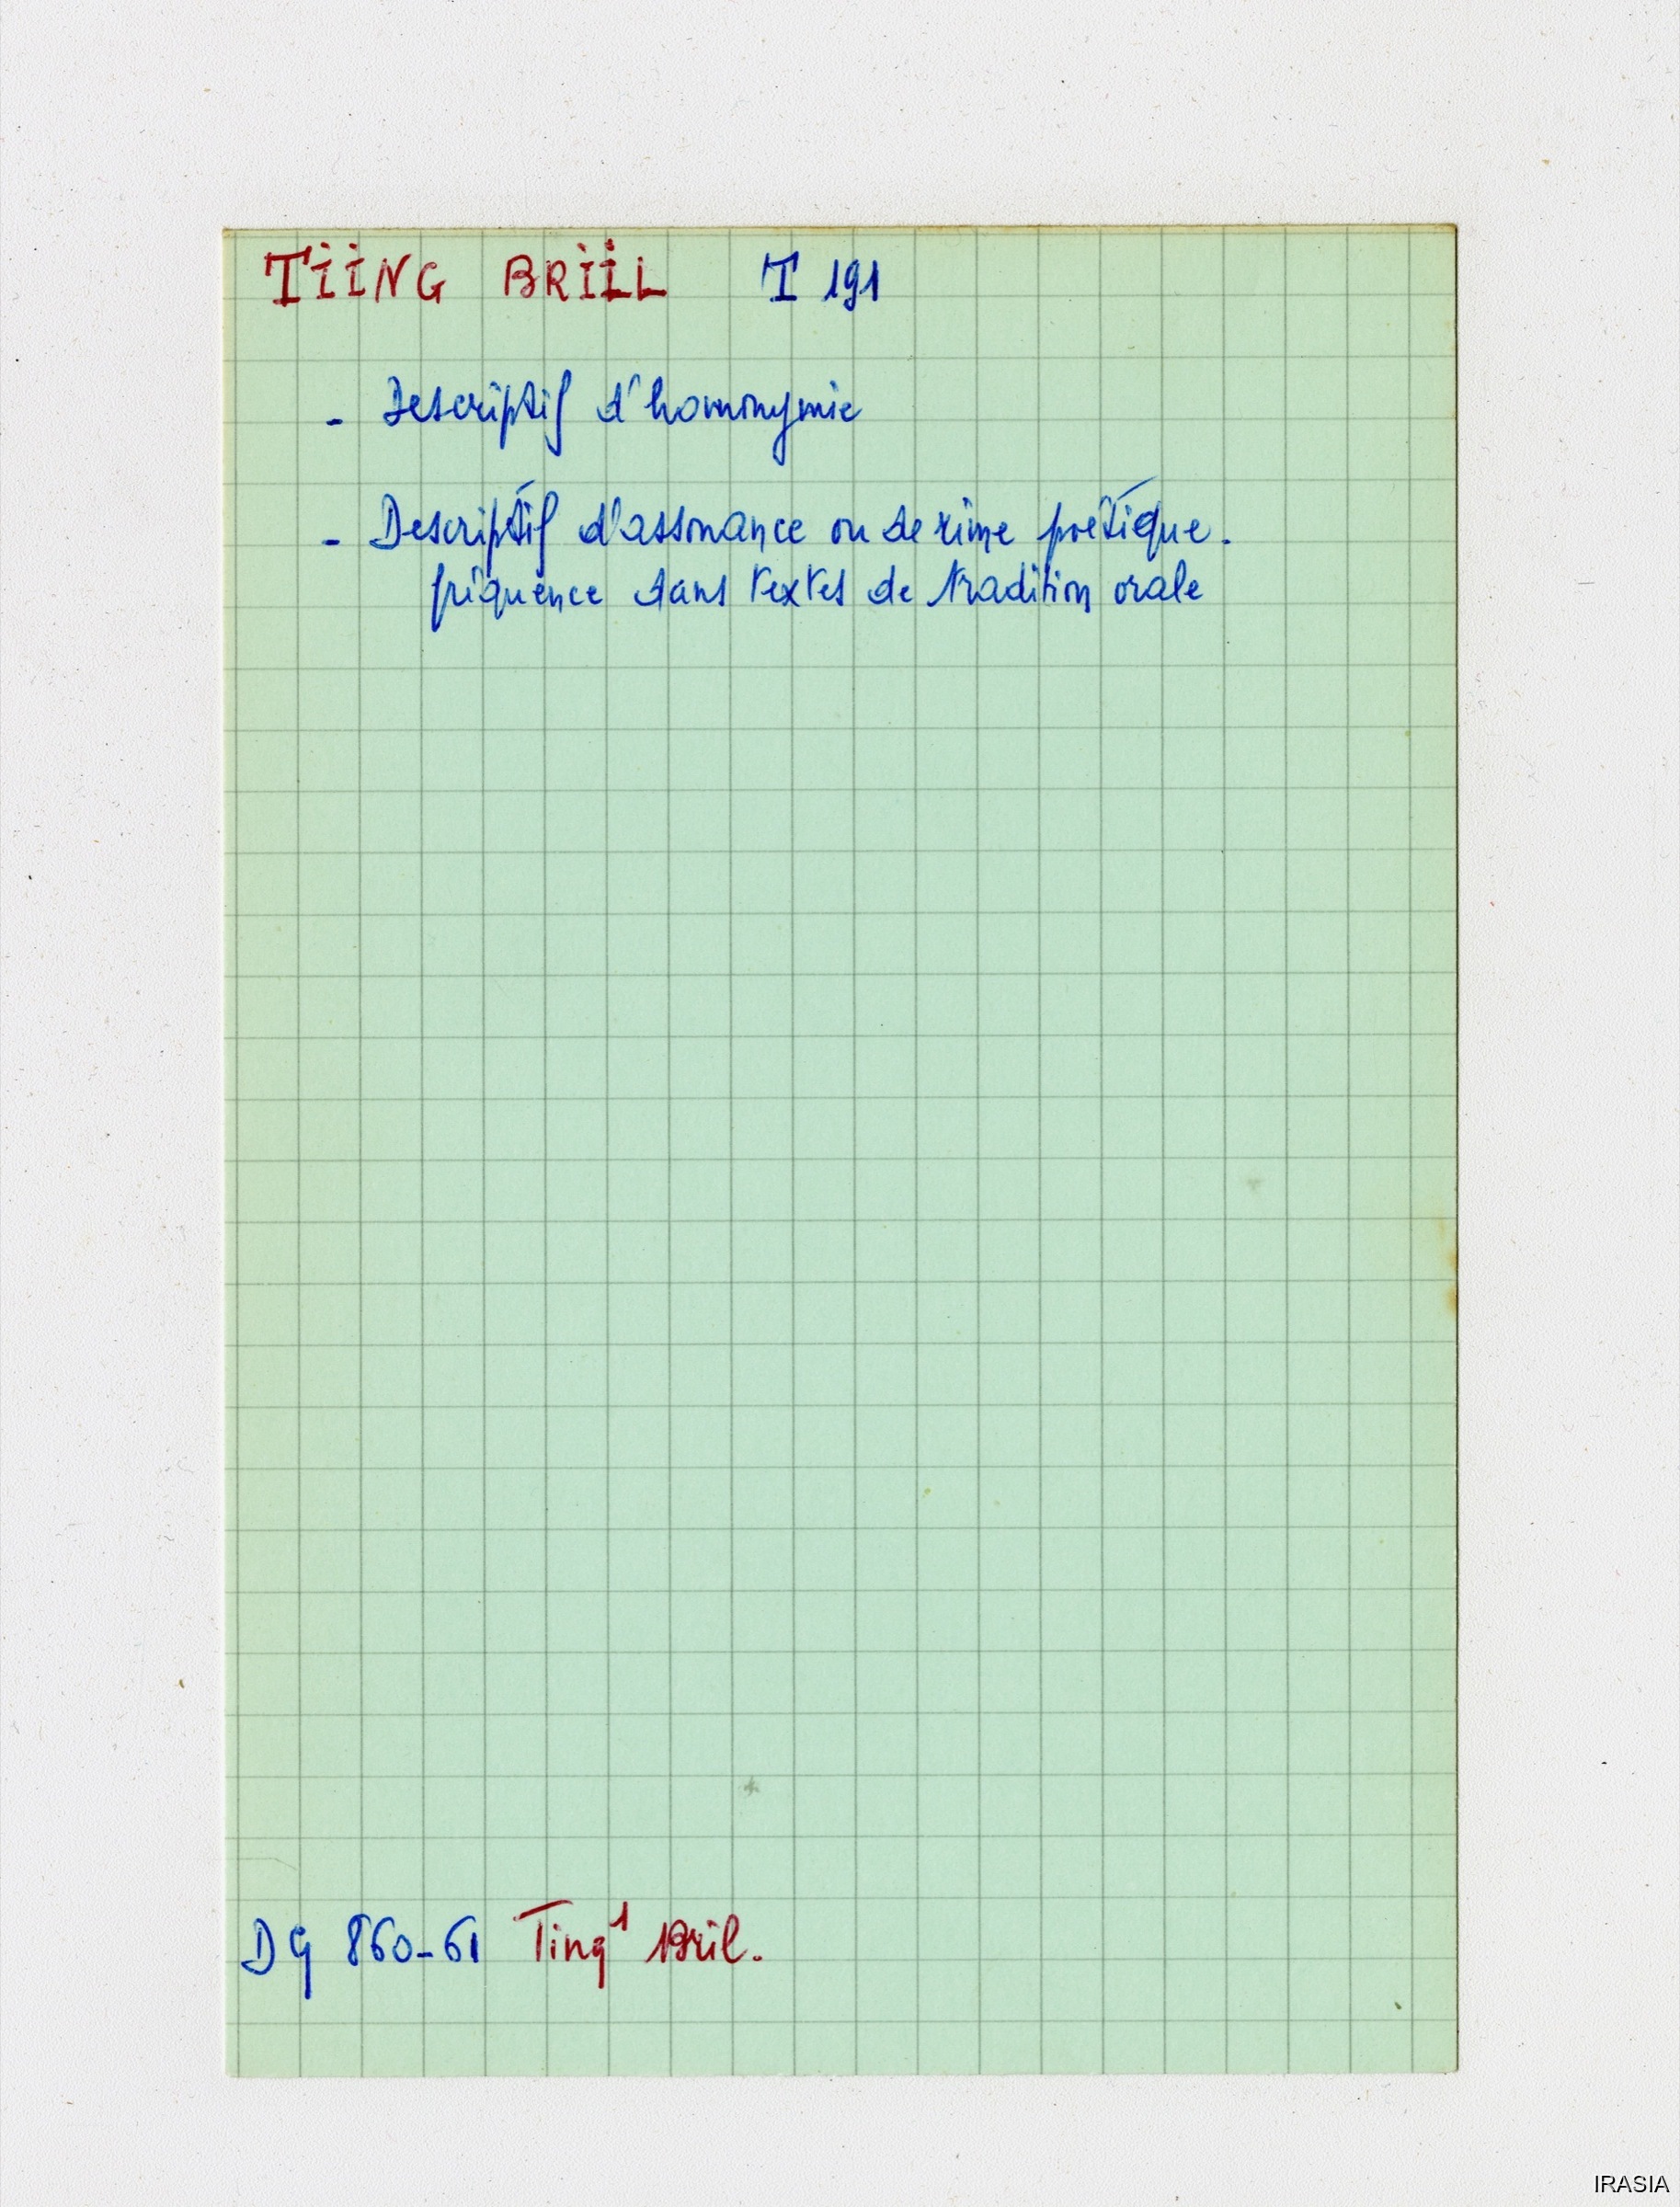 TIING BRIIL T 191
- Descriptif d'homonymie
- Descriptif d'assonance ou de rime poétique.
fréquence dans textes de tradition orale
DG 860-61 Ting¹ Bril.
IRASIA